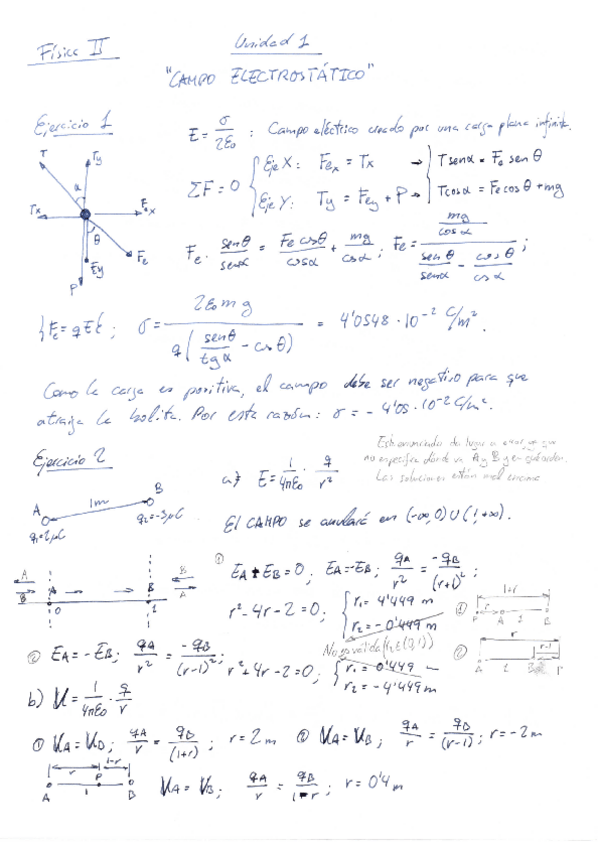 Física II
Unidad 1
"CAMPO ELECTROSTÁTICO"
Ejercicio 1
E = σ/2ε₀ : Campo eléctrico creado por una carga plana infinita.
T Ty α Tx Fex θ Fe Ey P
ΣF = 0 { Eje X: Fex = Tx → { T senα = Fe senθ
Eje Y: Ty = Fey + P → T cosα = Fe cosθ + mg
Fe · senθ/senα = Fe cosθ/cosα + mg/cosα ; Fe = (mg/cosα)/(senθ/senα - cosθ/cosα) ;
{Fe = qE} ; σ = 2ε₀mg / q(senθ/tgα - cosθ) = 4'0548 · 10⁻² C/m².
Como la carga es positiva, el campo debe ser negativo para que
atraiga la bolita. Por esta razón: σ = -4'05 · 10⁻² C/m².
Ejercicio 2
Este enunciado da lugar a error, ya que
no especifica dónde va A y B y en qué orden.
Las soluciones están mal
A 1m B
q₁=2μC q₂=-3μC
a) E = 1/4πε₀ · q/r²
El CAMPO se anulará en (-∞,0) ∪ (1,+∞).
A B A B B A
0 1
① EA + EB = 0 ; EA = -EB ; qA/r² = -qB/(r+1)² ;
r² - 4r - 2 = 0 ; { r₁ = 4'449 m
r₂ = -0'449 m
① 1+r r P A 1 B
No es válida
② EA = -EB ; qA/r² = -qB/(r-1)² ; r² + 4r - 2 = 0 ; { r₁ = 0'449
r₂ = -4'449 m
② r r-1 A 1 B P
b) V = 1/4πε₀ · q/r
① VA = VB ; qA/r = qB/(1+r) ; r = 2 m ② VA = VB ; qA/r = qB/(r-1) ; r = -2 m
r 1-r A P B 1
VA = VB ; qA/r = qB/1-r ; r = 0'4 m